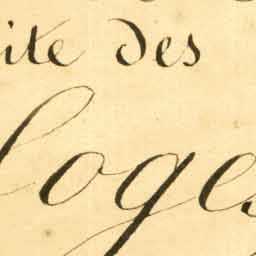 ite des
loges